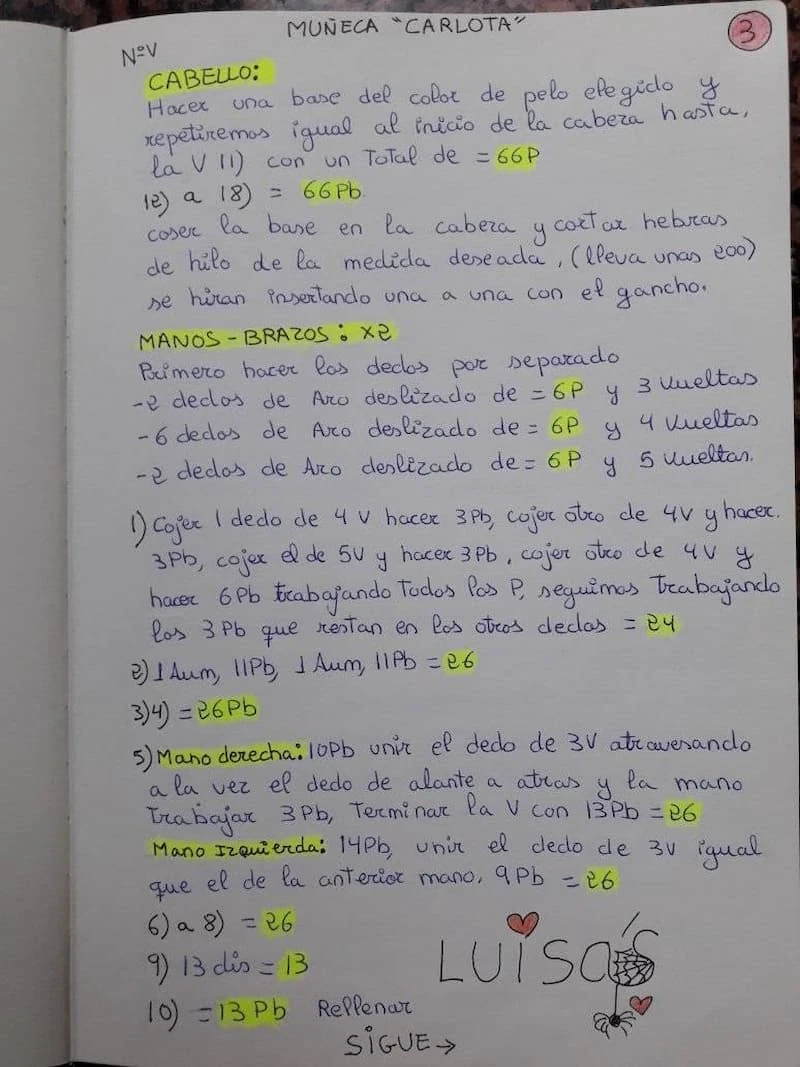 MUÑECA "CARLOTA"
3
NºV
CABELLO:
Hacer una base del color de pelo elegido y
repetiremos igual al inicio de la cabeza hasta,
la V 11) con un Total de = 66P
12) a 18) = 66Pb.
coser la base en la cabeza y cortar hebras
de hilo de la medida deseada, (lleva unas 200)
se hiran insertando una a una con el gancho.
MANOS-BRAZOS: X2
Primero hacer los dedos por separado
-2 dedos de Aro deslizado de = 6P y 3 vueltas
-6 dedos de Aro deslizado de = 6P y 4 vueltas
-2 dedos de Aro deslizado de = 6P y 5 vueltas.
1) Cojer 1 dedo de 4 V hacer 3Pb, cojer otro de 4V y hacer.
3Pb, cojer el de 5V y hacer 3Pb, cojer otro de 4V y
hacer 6Pb trabajando Todos los P, seguimos Trabajando
los 3Pb que restan en los otros dedos = 24
2) 1 Aum, 11Pb, 1 Aum, 11Pb = 26
3)4) = 26Pb
5) Mano derecha: 10Pb unir el dedo de 3V atravesando
a la vez el dedo de alante a atras y la mano
Trabajar 3Pb, Terminar la V con 13Pb = 26
Mano Izquierda: 14Pb, unir el dedo de 3V igual
que el de la anterior mano, 9Pb = 26
6) a 8) = 26
9) 13 dis = 13
10) = 13Pb Rellenar
LUISA'S
SIGUE →